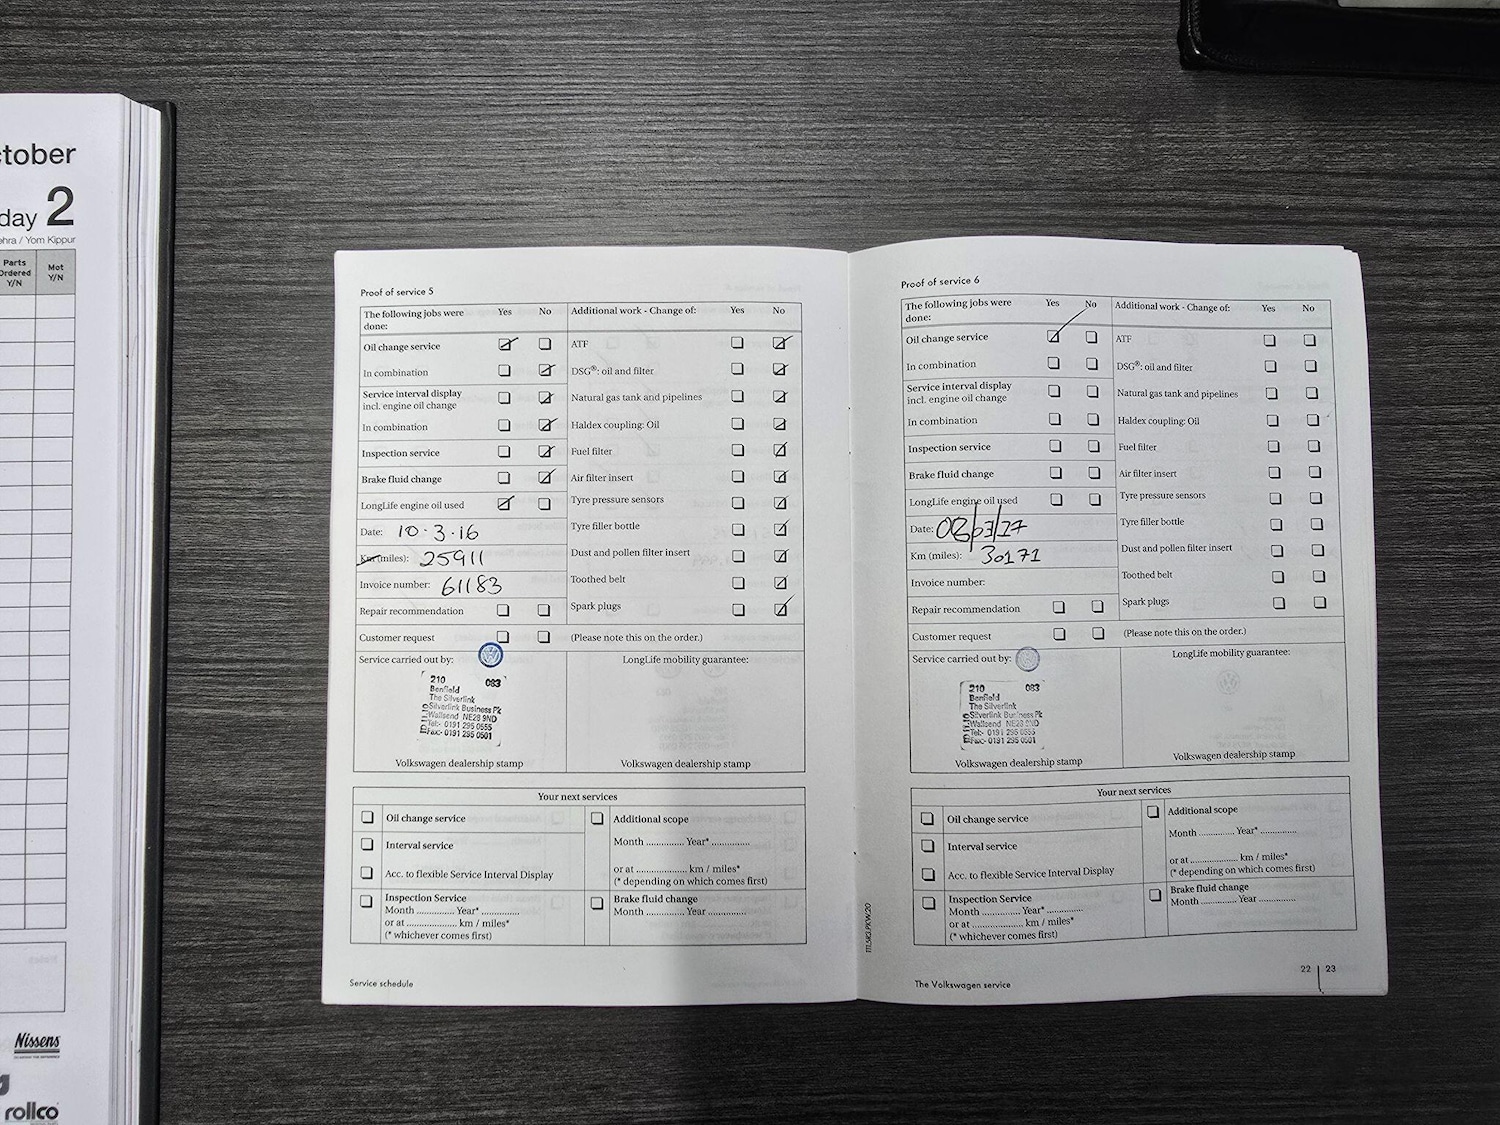 ctober
day 2
ehra / Yom Kippur
Parts
Ordered
Y/N
Mot
Y/N
Nissens
rollco
Proof of service 5
The following jobs were
done:
Yes
No
Additional work - Change of:
Yes
No
Oil change service
ATF
In combination
DSG®: oil and filter
Service interval display
incl. engine oil change
Natural gas tank and pipelines
In combination
Haldex coupling: Oil
Inspection service
Fuel filter
Brake fluid change
Air filter insert
LongLife engine oil used
Tyre pressure sensors
Date: 10·3·16
Tyre filler bottle
Km (miles): 25911
Dust and pollen filter insert
Invoice number: 61183
Toothed belt
Repair recommendation
Spark plugs
Customer request
(Please note this on the order.)
Service carried out by:
LongLife mobility guarantee:
210 083
Benfield
The Silverlink
Silverlink Business Pk
Wallsend NE28 9ND
Tel:- 0191 295 0555
Fax:- 0191 295 0501
Volkswagen dealership stamp
Volkswagen dealership stamp
Your next services
Oil change service
Additional scope
Month .............. Year* ..............
Interval service
Acc. to flexible Service Interval Display
or at .................... km / miles*
(* depending on which comes first)
Inspection Service
Month .............. Year* ..............
or at .................... km / miles*
(* whichever comes first)
Brake fluid change
Month .............. Year ..............
Service schedule
Proof of service 6
The following jobs were
done:
Yes
No
Additional work - Change of:
Yes
No
Oil change service
ATF
In combination
DSG®: oil and filter
Service interval display
incl. engine oil change
Natural gas tank and pipelines
In combination
Haldex coupling: Oil
Inspection service
Fuel filter
Brake fluid change
Air filter insert
LongLife engine oil used
Tyre pressure sensors
Date: 08/03/17
Tyre filler bottle
Km (miles): 30171
Dust and pollen filter insert
Invoice number:
Toothed belt
Repair recommendation
Spark plugs
Customer request
(Please note this on the order.)
Service carried out by:
LongLife mobility guarantee:
210 083
Benfield
The Silverlink
Silverlink Business Pk
Wallsend NE28 9ND
Tel:- 0191 295 0555
Fax:- 0191 295 0501
Volkswagen dealership stamp
Volkswagen dealership stamp
Your next services
Oil change service
Additional scope
Month .............. Year* ..............
Interval service
Acc. to flexible Service Interval Display
or at .................... km / miles*
(* depending on which comes first)
Inspection Service
Month .............. Year* ..............
or at .................... km / miles*
(* whichever comes first)
Brake fluid change
Month .............. Year ..............
The Volkswagen service
22 23